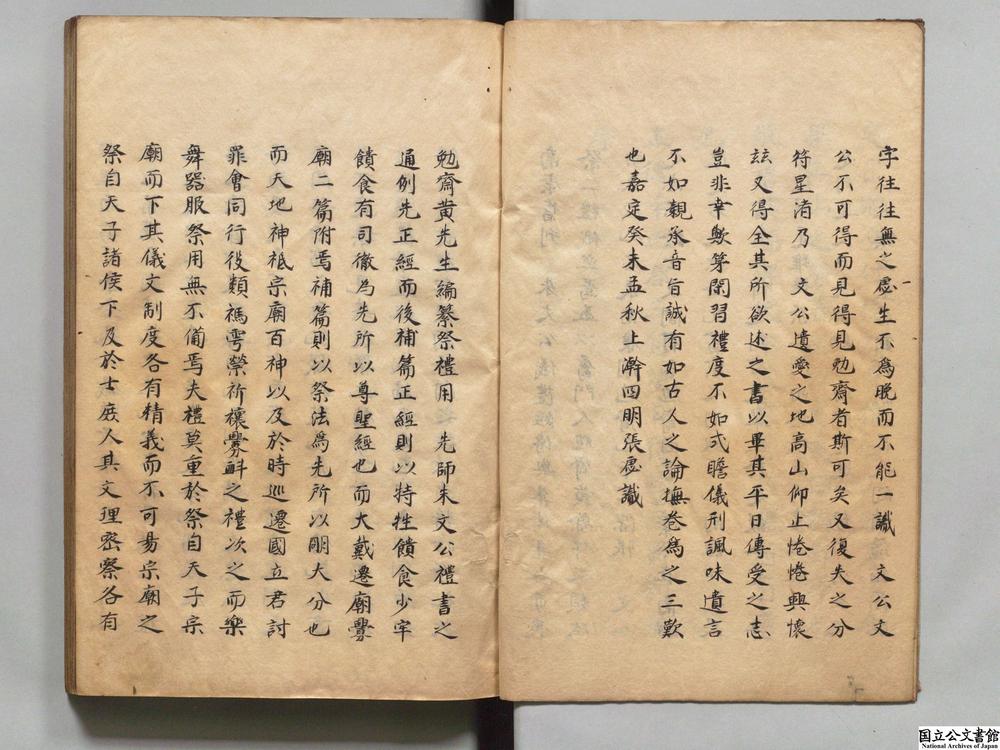 字往往無之虙生不爲晩而不能一識 文公文
公不可得而見得見勉齋者斯可矣又復失之分
符星渚乃 文公遺愛之地高山仰止惓惓興懷
玆又得全其所欲述之書以畢其平日傳受之志
豈非幸歟第閑習禮度不如式瞻儀刑諷味遺言
不如親承音旨誠有如古人之論撫卷爲之三歎
也嘉定癸未孟秋上澣四明張虙識
勉齋黃先生編纂祭禮用 先師朱文公禮書之
通例先正經而後補篇正經則以特牲饋食少牢
饋食有司徹為先所以尊聖經也而大戴遷廟釁
廟二篇附焉補篇則以祭法爲先所以明大分也
而天地神祇宗廟百神以及於時巡遷國立君討
罪會同行役類禡雩禜祈禳釁衈之禮次之而樂
舞器服祭用無不備焉夫禮莫重於祭自天子宗
廟而下其儀文制度各有精義而不可昜宗廟之
祭自天子諸侯下及於士庶人其文理密察各有
国立公文書館
National Archives of Japan